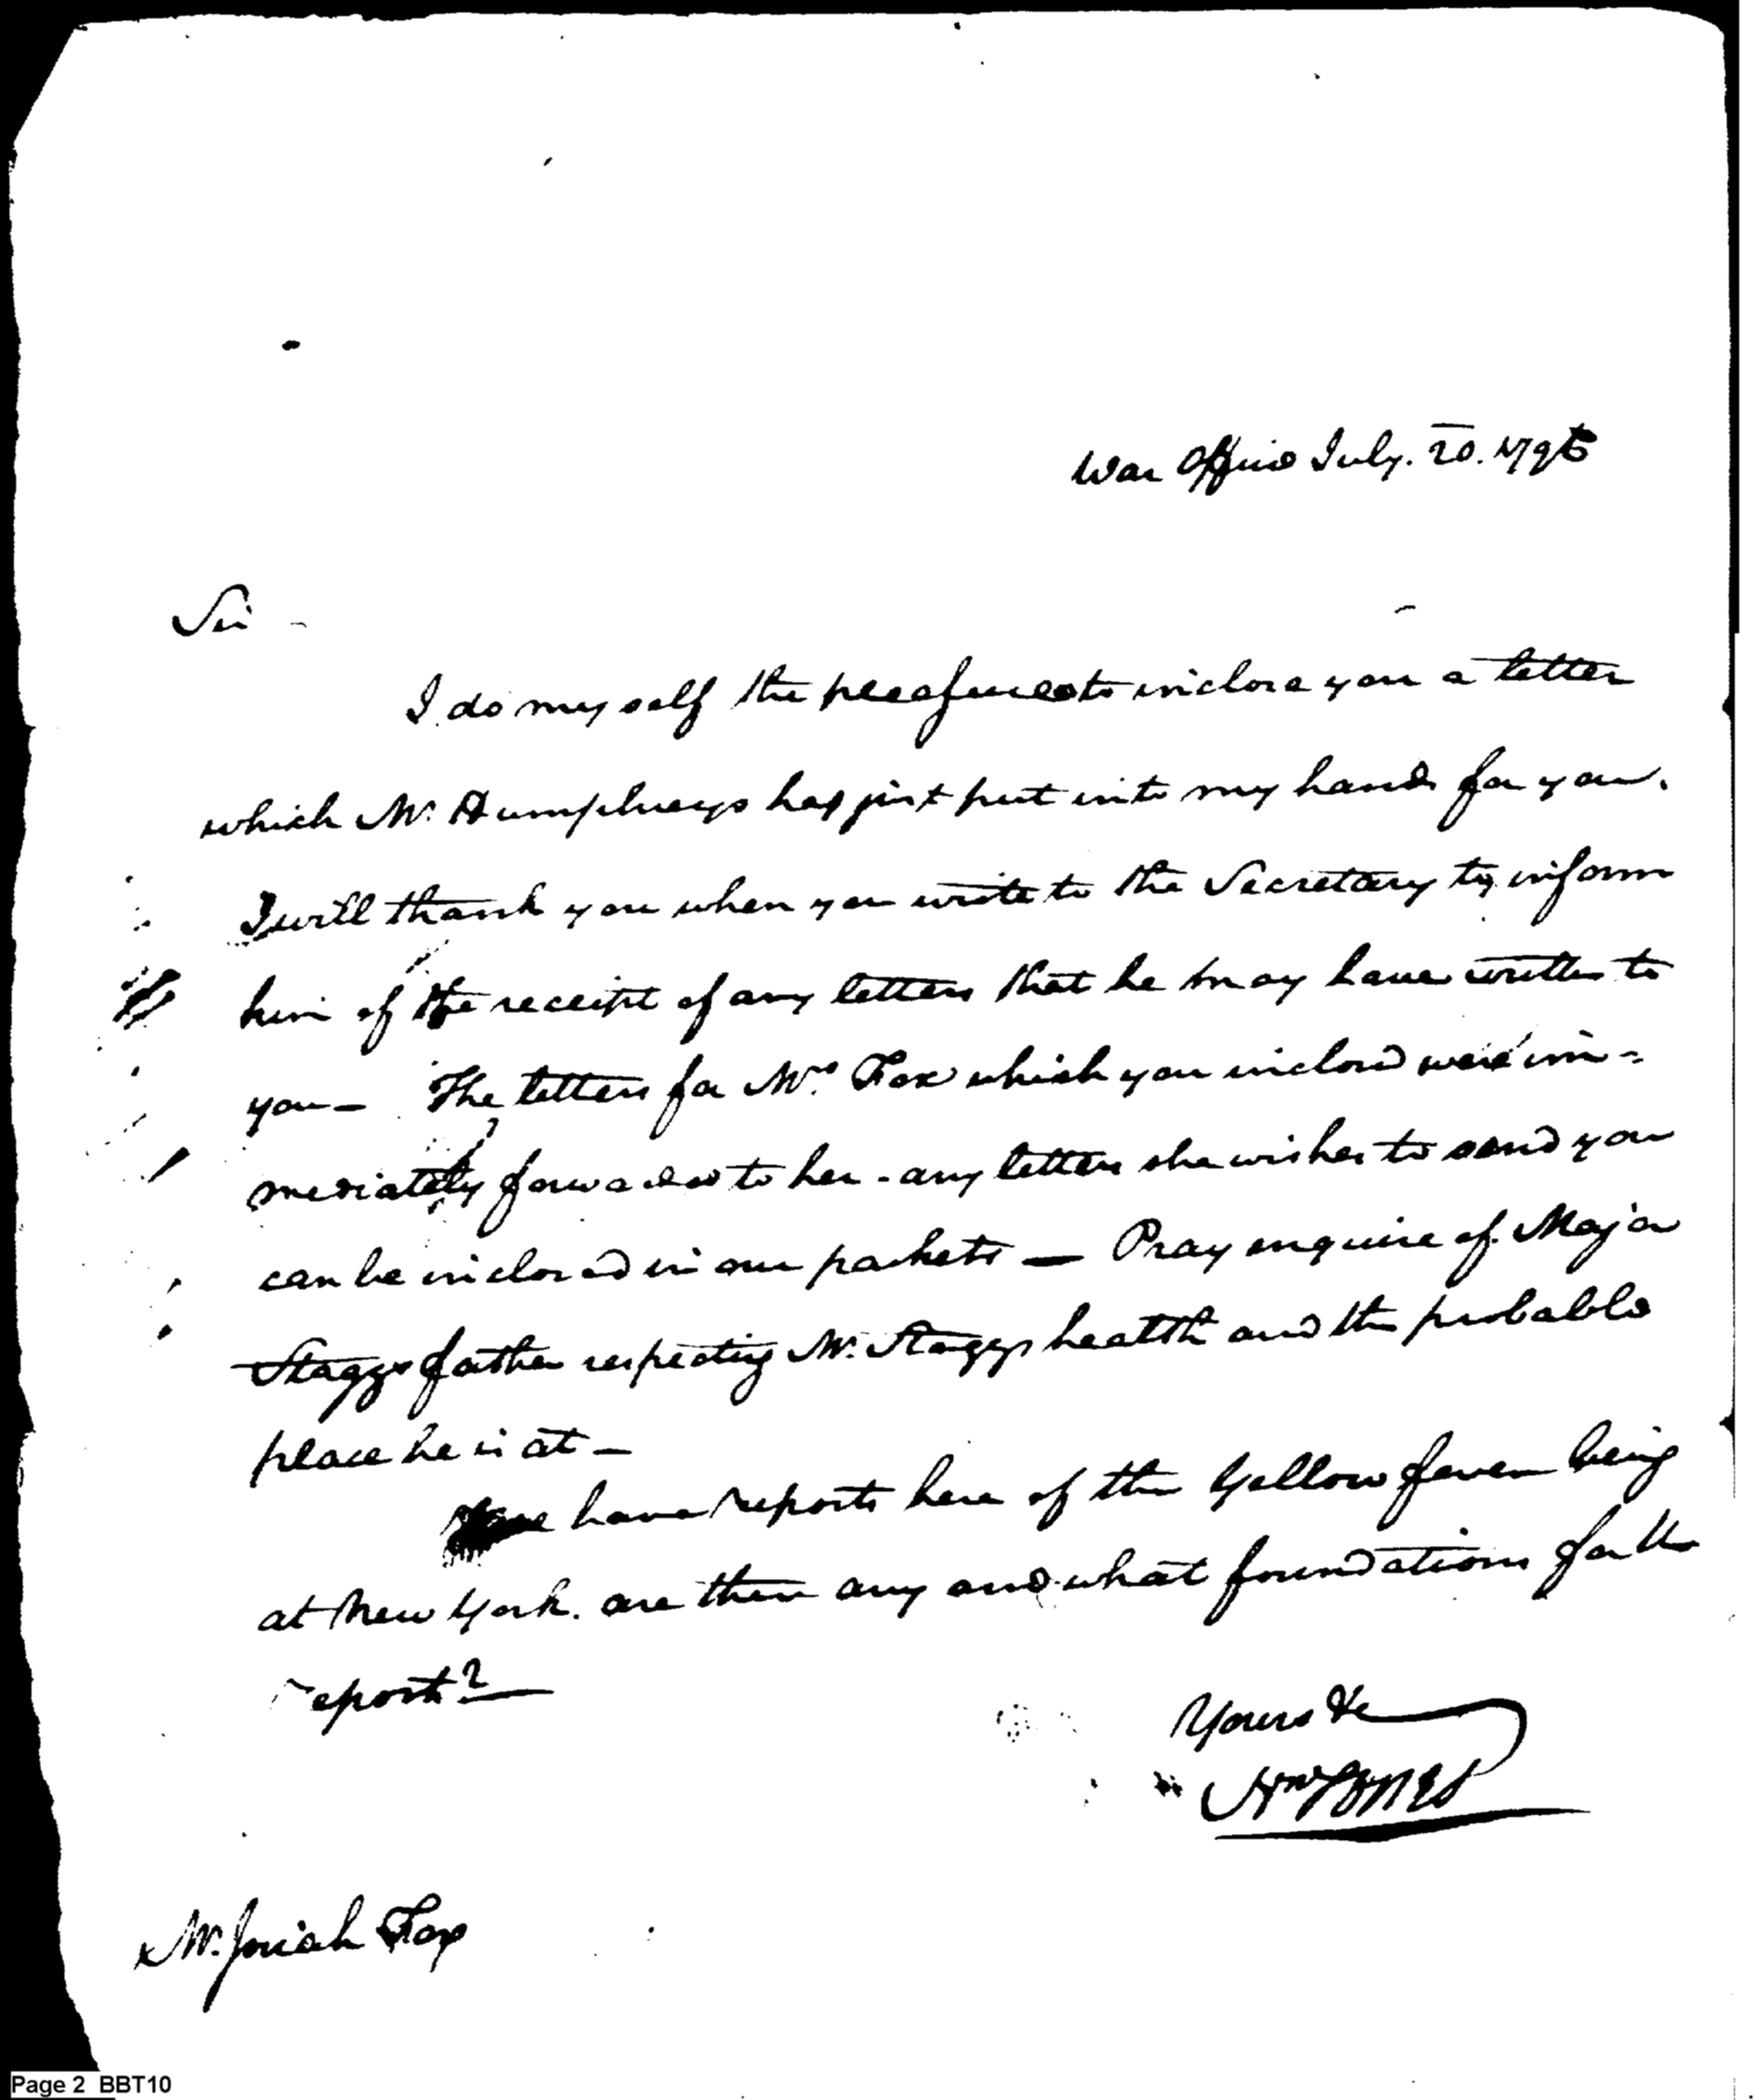 War Office July. 20. 1795
Sir -
I do my self the pleasure to inclose you a letter
which Mr. Humphreys has just put into my hands for you.
I will thank you when you write to the Secretary to inform
him of the receipt of any letters that he may have written to
you - The letters for Mrs. Fox which you inclosed were im=
mediately forwarded to her - any letters she wishes to send you
can be inclosed in our packets - Pray enquire of Major
Staggs father respecting Mr. Staggs health and the probable
place he is at -
We have reports here of the Yellow fever being
at New York. are there any and what foundations for the
report? -
Yours &c
Mr. Josiah Fox
Page 2 BBT10